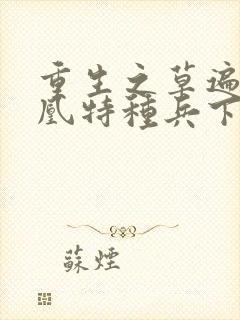 重生之草遍
凰特種兵下
蘇煙